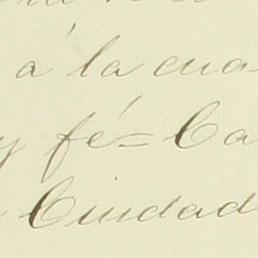 á la cua
y fé = Ca
Ciudad